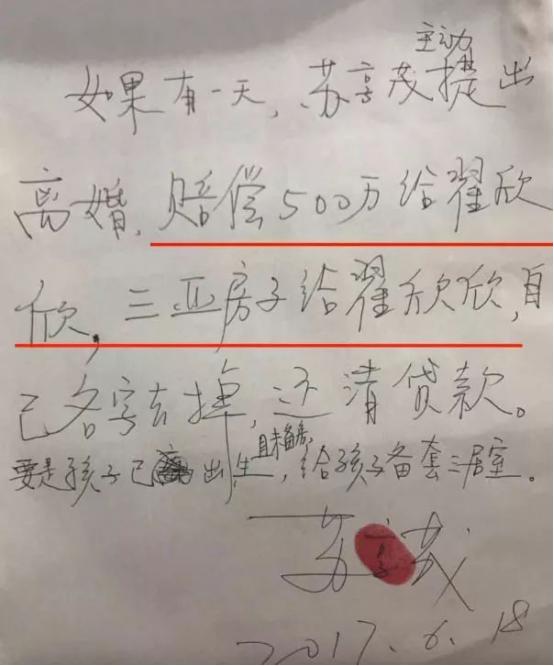 主动
如果有一天，苏享茂提出
离婚，赔偿500万给翟欣
欣，三亚房子给翟欣欣，自
己名字去掉，还清贷款。
要是孩子已出生且未结婚，给孩子备套三居室。
苏享茂
2017.6.18